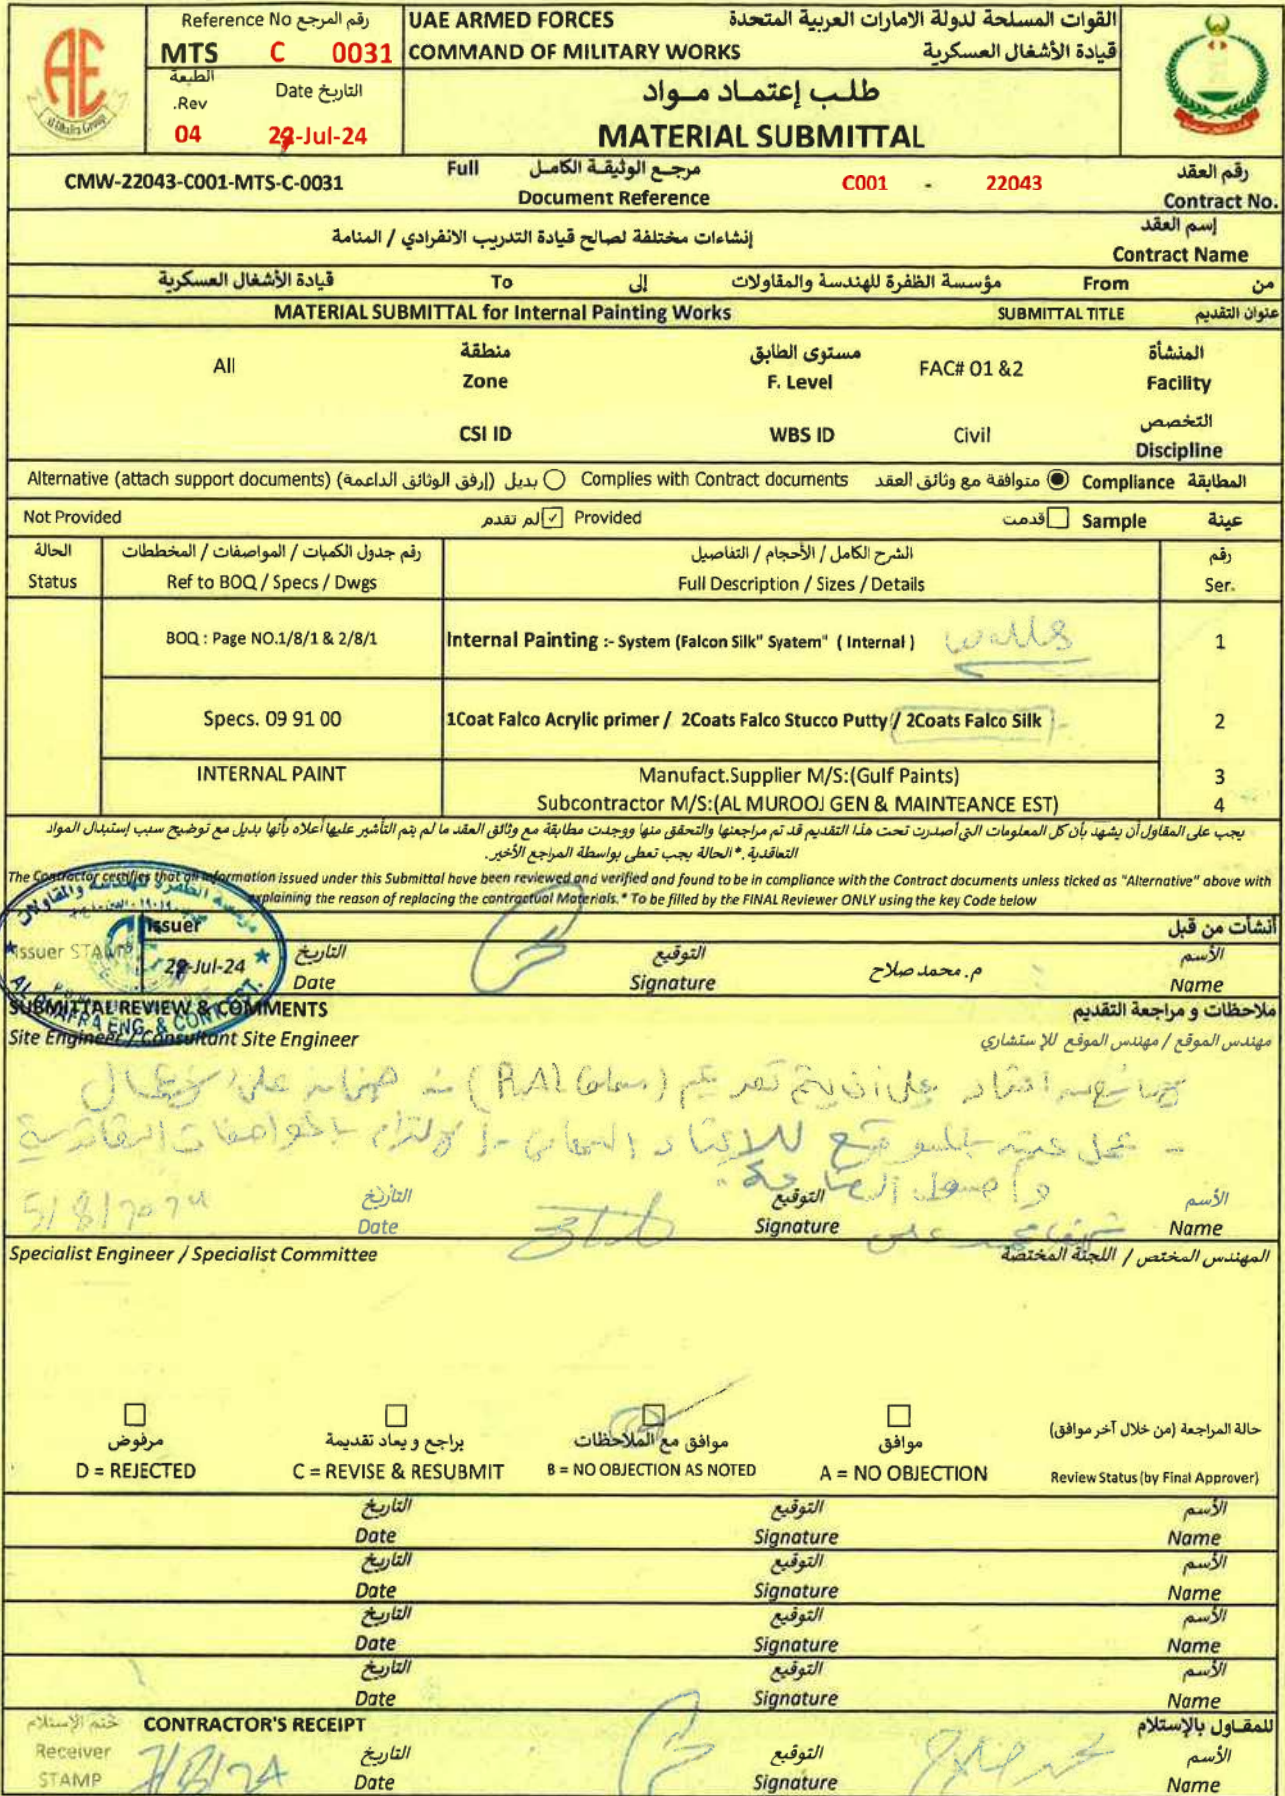 Reference No رقم المرجع
MTS C 0031
الطبعة
Rev.
04
التاريخ Date
29-Jul-24
UAE ARMED FORCES القوات المسلحة لدولة الامارات العربية المتحدة
COMMAND OF MILITARY WORKS قيادة الأشغال العسكرية
طلب إعتماد مواد
MATERIAL SUBMITTAL
al Dhafra Group
CMW-22043-C001-MTS-C-0031
Full مرجع الوثيقة الكامل
Document Reference
C001 - 22043
رقم العقد
Contract No.
إنشاءات مختلفة لصالح قيادة التدريب الانفرادي / المنامة
إسم العقد
Contract Name
قيادة الأشغال العسكرية To إلى مؤسسة الظفرة للهندسة والمقاولات From من
MATERIAL SUBMITTAL for Internal Painting Works SUBMITTAL TITLE عنوان التقديم
All
منطقة
Zone
مستوى الطابق
F. Level
FAC# 01 &2
المنشأة
Facility
CSI ID
WBS ID
Civil
التخصص
Discipline
Alternative (attach support documents) بديل (إرفق الوثائق الداعمة) Complies with Contract documents متوافقة مع وثائق العقد Compliance المطابقة
Not Provided لم تقدم Provided قدمت Sample عينة
الحالة
Status
رقم جدول الكميات / المواصفات / المخططات
Ref to BOQ / Specs / Dwgs
الشرح الكامل / الأحجام / التفاصيل
Full Description / Sizes / Details
رقم
Ser.
BOQ : Page NO.1/8/1 & 2/8/1
Internal Painting :- System (Falcon Silk" Syatem" ( Internal )
walls
1
Specs. 09 91 00
1Coat Falco Acrylic primer / 2Coats Falco Stucco Putty / 2Coats Falco Silk
2
INTERNAL PAINT
Manufact.Supplier M/S:(Gulf Paints)
3
Subcontractor M/S:(AL MUROOJ GEN & MAINTEANCE EST)
4
يجب على المقاول أن يشهد بأن كل المعلومات التي أصدرت تحت هذا التقديم قد تم مراجعتها والتحقق منها ووجدت مطابقة مع وثائق العقد ما لم يتم التأشير عليها أعلاه بأنها بديل مع توضيح سبب إستبدال المواد
التعاقدية .* الحالة يجب تعطى بواسطة المراجع الأخير.
The Contractor certifies that all information issued under this Submittal have been reviewed and verified and found to be in compliance with the Contract documents unless ticked as "Alternative" above with
explaining the reason of replacing the contractual Materials.* To be filled by the FINAL Reviewer ONLY using the key Code below
مؤسسة الظفرة للهندسة والمقاولات
AL DHAFRA ENG. & CONT. EST.
Issuer أنشأت من قبل
Issuer STAMP
29-Jul-24
التاريخ
Date
التوقيع
Signature
م. محمد صلاح
الأسم
Name
SUBMITTAL REVIEW & COMMENTS ملاحظات و مراجعة التقديم
Site Engineer / Consultant Site Engineer مهندس الموقع / مهندس الموقع للإستشاري
على أن يتم (RAL)
- عمل عينة بالموقع للاعتماد الالتزام بالمواصفات
وأصول الصناعة.
5/8/2024
التاريخ
Date
التوقيع
Signature
الأسم
Name
محمد
Specialist Engineer / Specialist Committee المهندس المختص / اللجنة المختصة
مرفوض
D = REJECTED
يراجع و يعاد تقديمة
C = REVISE & RESUBMIT
موافق مع الملاحظات
B = NO OBJECTION AS NOTED
موافق
A = NO OBJECTION
حالة المراجعة (من خلال آخر موافق)
Review Status (by Final Approver)
التاريخ التوقيع الأسم
Date Signature Name
التاريخ التوقيع الأسم
Date Signature Name
التاريخ التوقيع الأسم
Date Signature Name
التاريخ التوقيع الأسم
Date Signature Name
ختم الإستلام CONTRACTOR'S RECEIPT للمقاول بالإستلام
Receiver
STAMP
7/8/24
التاريخ
Date
التوقيع
Signature
محمد صلاح
الأسم
Name